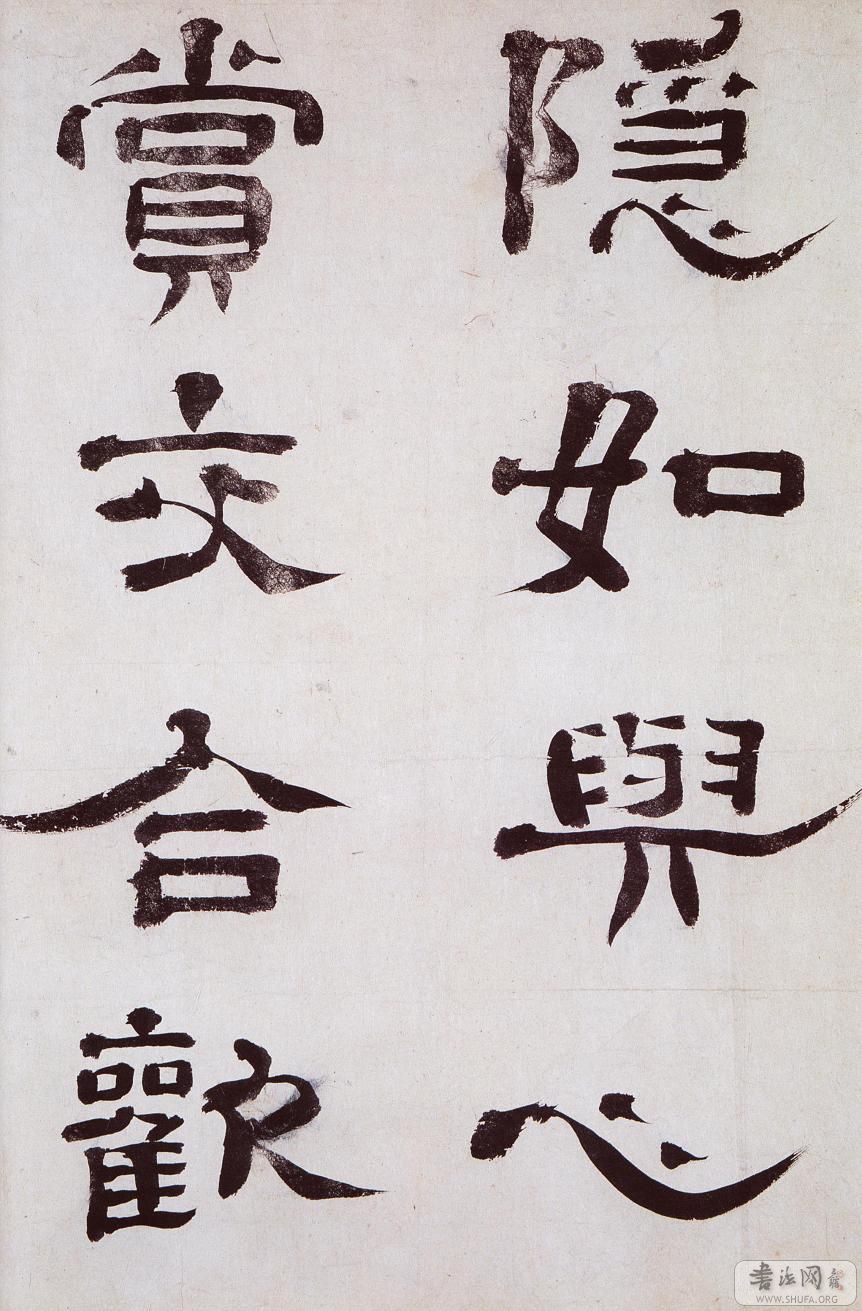 隱如與心
賞交合歡
書法网
WWW.SHUFA.ORG